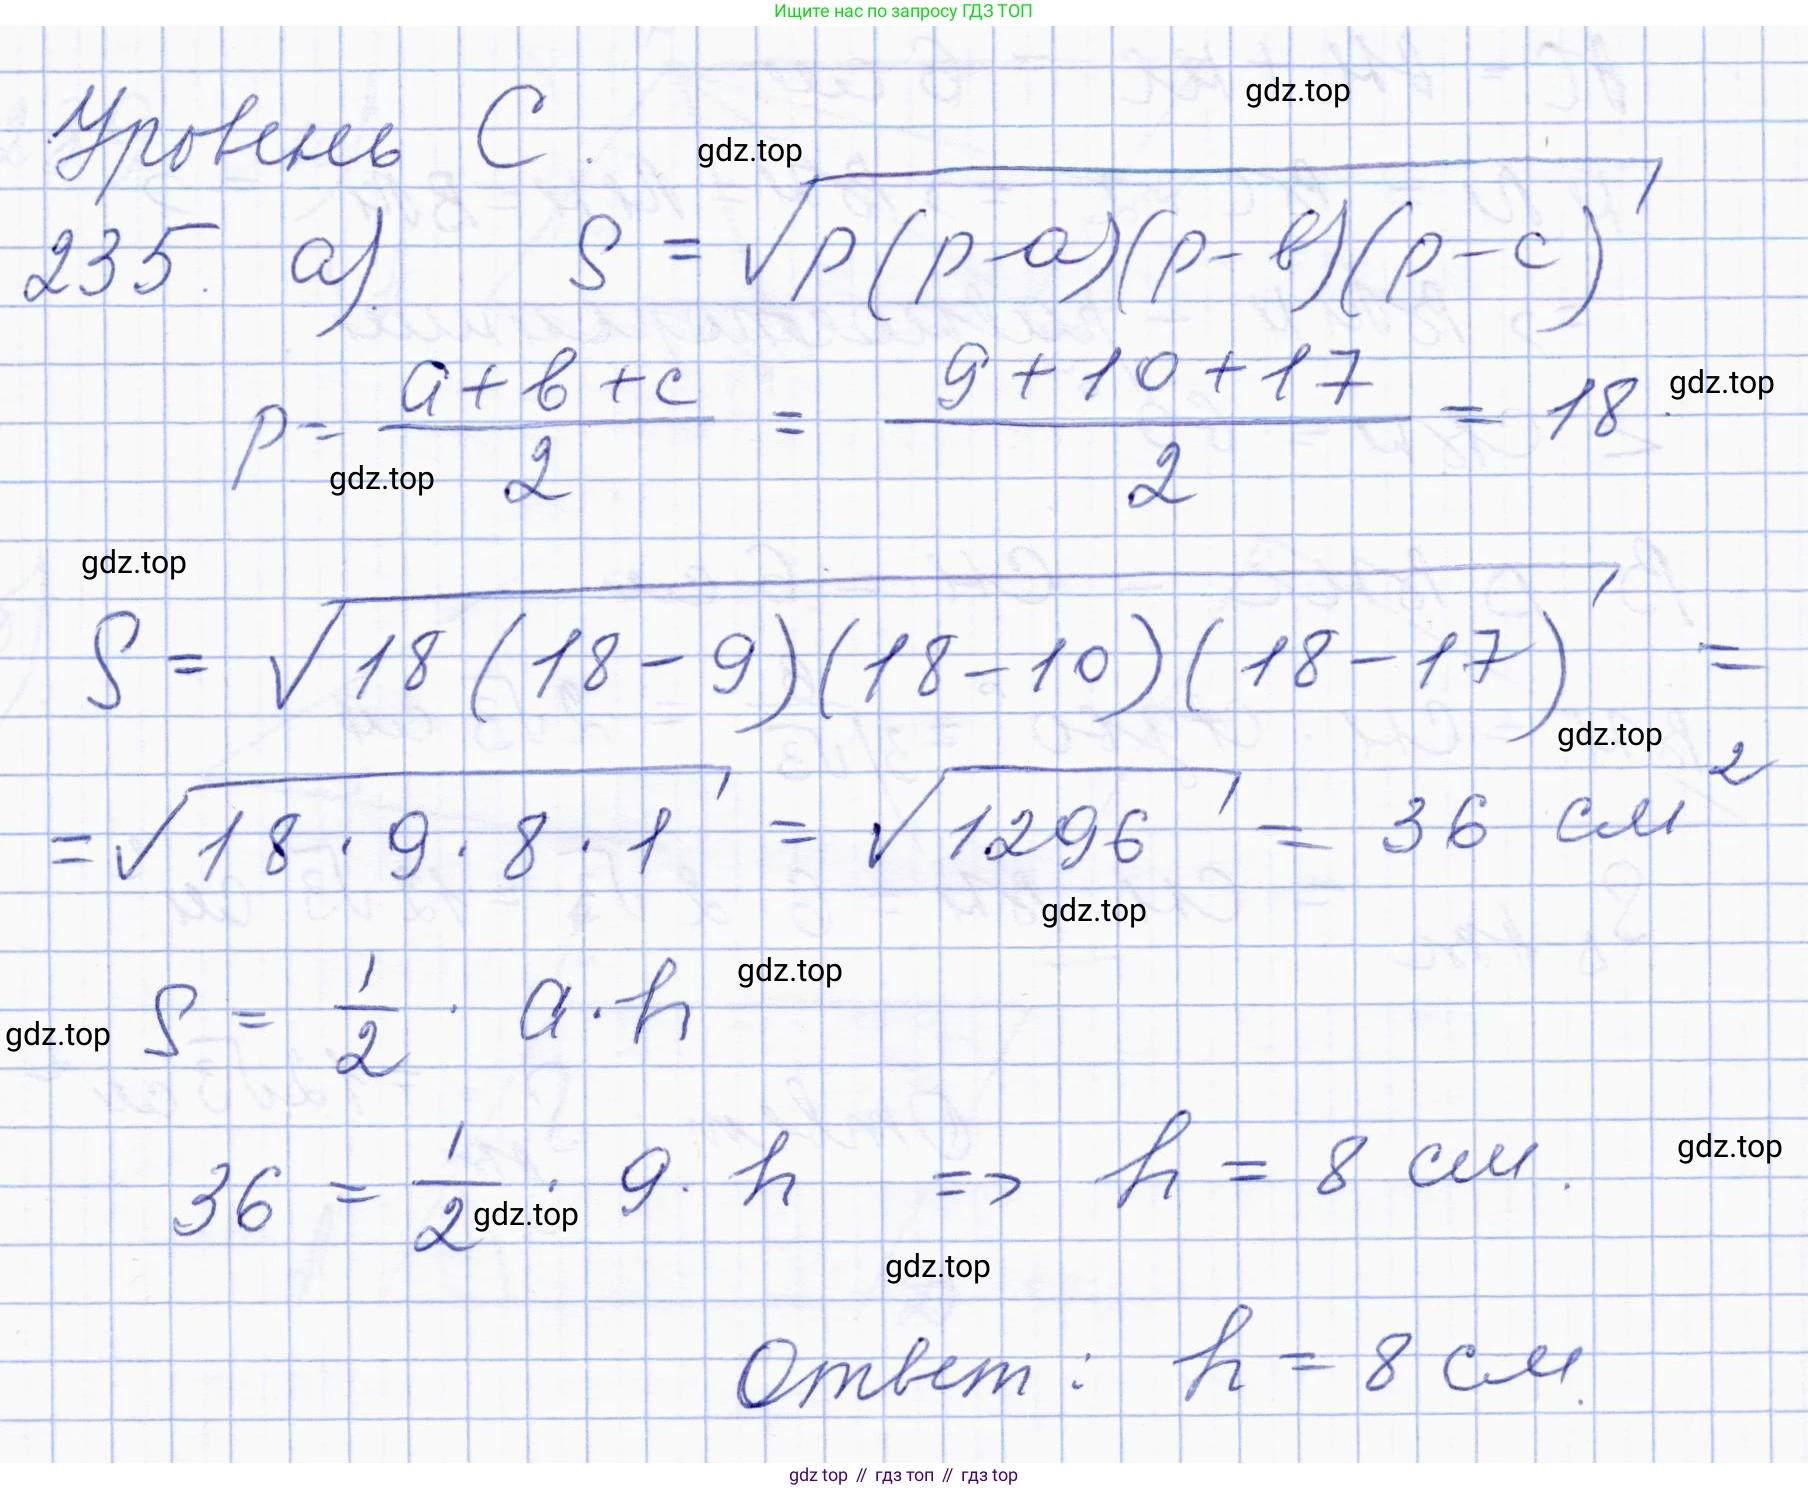 Ищите нас по запросу ГДЗ ТОП
gdz.top
Уровень С.
gdz.top
235. а). S = √p(p-a)(p-b)(p-c)
p = a+b+c / 2 = 9+10+17 / 2 = 18.
gdz.top
gdz.top
gdz.top
S = √18(18-9)(18-10)(18-17) =
gdz.top
= √18·9·8·1 = √1296 = 36 см²
gdz.top
gdz.top
S = 1/2 · a·h
gdz.top
gdz.top
36 = 1/2 · 9·h => h = 8 см.
gdz.top
gdz.top
Ответ: h = 8 см.
gdz top // гдз топ // гдз top